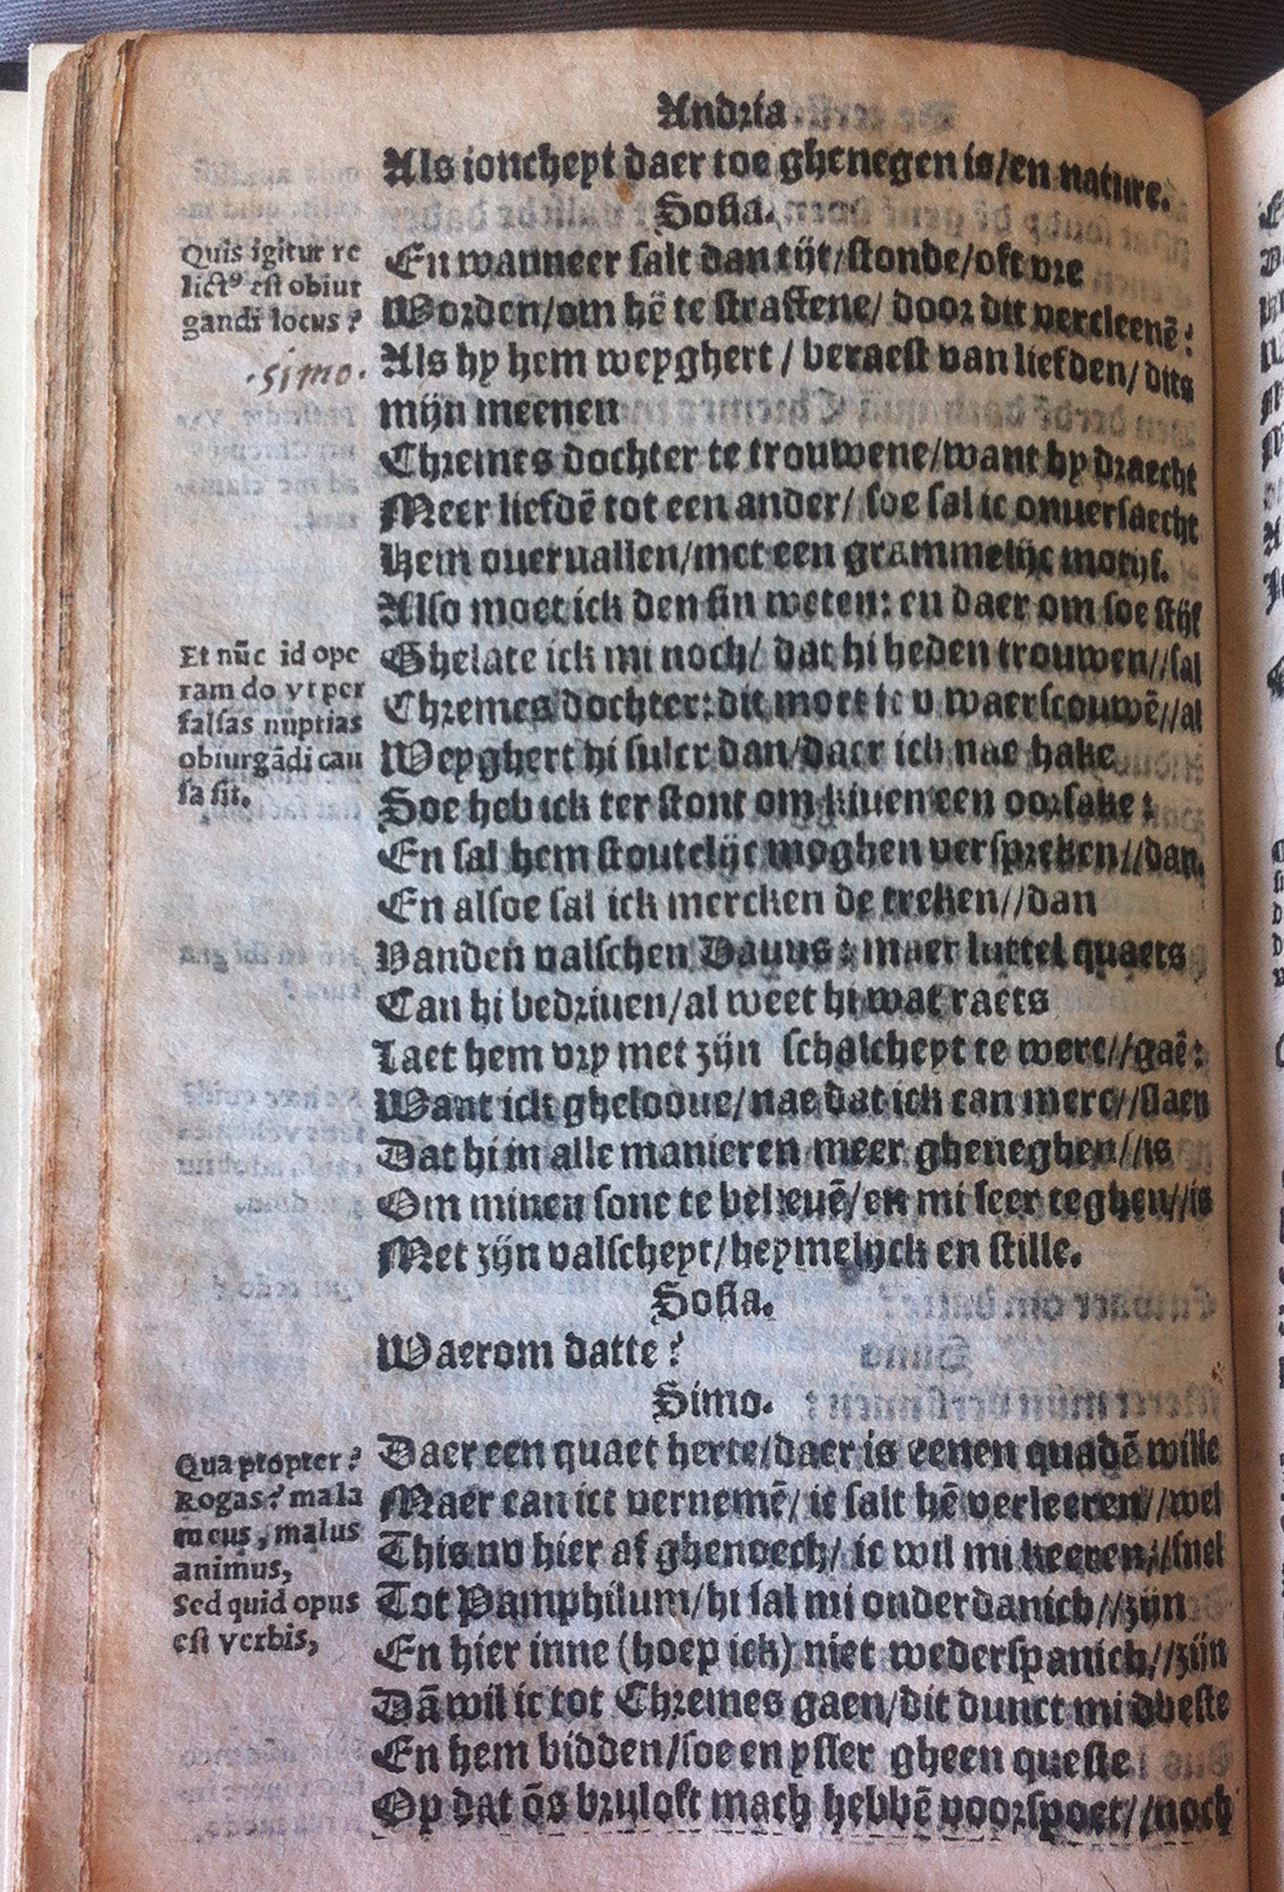 Andria.
Als ioncheyt daer toe ghenegen is/en nature.
Sosia.
Quis igitur re
lictꝰ est obiur
gandi locus?
En wanneer salt dan tijt/stonde/oft vre
Worden/om hē te straffene/ door dit vercleenē?
·simo·
Als hy hem weyghert / beraest van liefden/ dits
mijn meenen
Chremes dochter te trouwene/want hy draecht
Meer liefdē tot een ander/ soe sal ic onuersaecht
Hem oueruallen/met een grammelijc motijf.
Also moet ick den sin weten: en daer om soe stijf
Et nūc id ope
ram do vt per
falsas nuptias
obiurgādi cau
sa sit.
Ghelate ick mi noch/ dat hi heden trouwen//sal
Chremes dochter: dit moet ic v waerscouwē//al
Weyghert hi sulcx dan/daer ick nae hake
Soe heb ick ter stont om kiuen een oorsake:
En sal hem stoutelijc moghen verspreken//dan.
En alsoe sal ick mercken de treken//dan
Vanden valschen Dauus: maer luttel quaets
Can hi bedriuen/al weet hi wat raets
Laet hem vry met zijn schalcheyt te werc//gaē:
Want ick ghelooue/nae dat ick can merc//slaen
Dat hi in alle manieren meer gheneghen//is
Om minen sone te belieuē/en mi seer teghen//is
Met zijn valscheyt/heymelijck en stille.
Sosia.
Waerom datte?
Simo.
Quapropter?
Rogas? mala
mens, malus
animus,
Sed quid opus
est verbis,
Daer een quaet herte/daer is eenen quadē wille
Maer can ict vernemē/ ic salt hē verleeren//wel
This nv hier af ghenoech/ ic wil mi keeren//snel
Tot Pamphilum/hi sal mi onderdanich//zijn
En hier inne (hoep ick) niet wederspanich//zijn
Dā wil ic tot Chremes gaen/dit dunct mi dbeste
En hem bidden/soe en ysser gheen queste
Op dat ōs bruloft mach hebbē voorspoet//noch